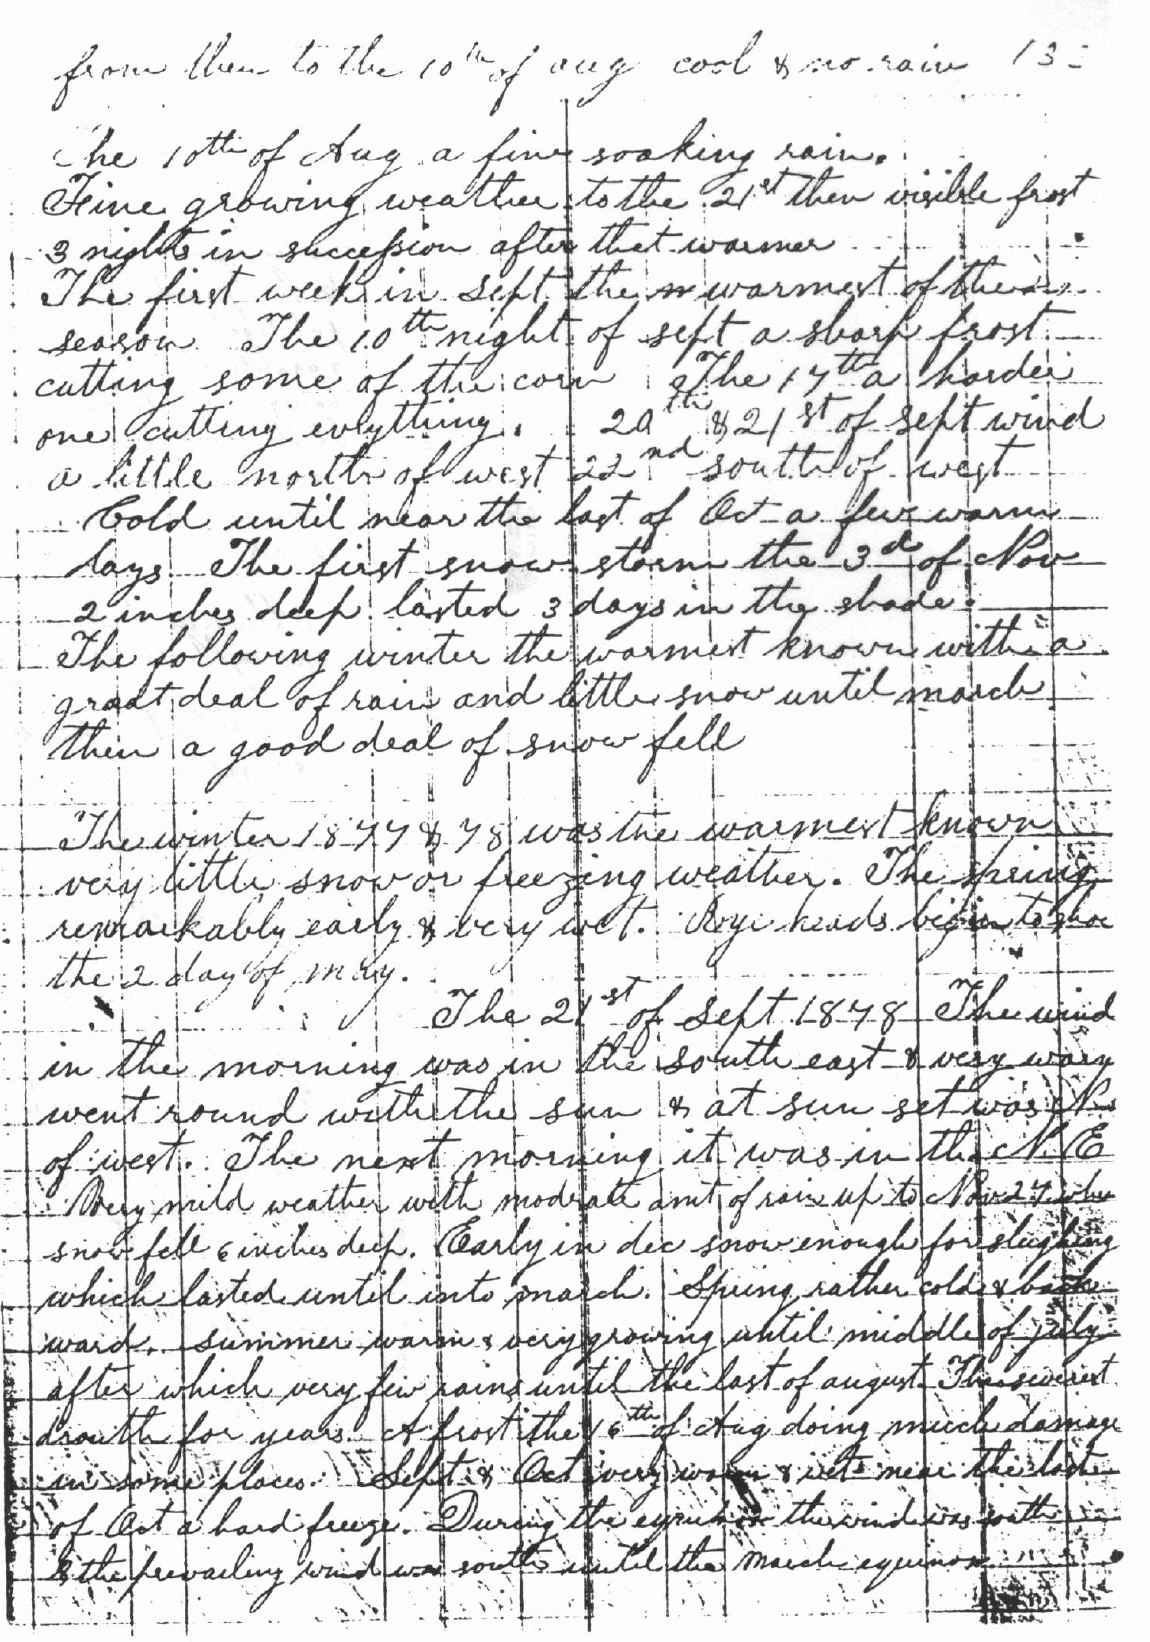 from then to the 10th of aug cool & no rain 13
The 10th of Aug a fine soaking rain.
Fine growing weather to the 21st then visible frost
3 nights in succession after that warmer
The first week in Sept the warmest of the
season The 10th night of sept a sharp frost
cutting some of the corn The 17th a harder
one cutting evlything. 20th & 21st of Sept wind
a little north of west 22nd south of west
Cold until near the last of Oct a few warm
days The first snow storm the 3d of Nov
2 inches deep lasted 3 days in the shade.
The following winter the warmest known with a
graat deal of rain and little snow until march
then a good deal of snow fell
The winter 1877 & 78 was the warmest known
very little snow or freezing weather. The spring
remarkably early & very wet. Rye heads begin to shoe
the 2 day of may.
The 21st of Sept 1878 The wind
in the morning was in the south east & very warm
went round with the sun & at sun set was N
of west. The next morning it was in the N. E
Very mild weather with modrate amt of rain up to Nov 27 when
snow fell 6 inches deep. Early in dec snow enough for sleighing
which lasted until into march. Spring rather cold & back
ward. summer warm & very growing until middle of july
after which very few rains until the last of august. The severest
drouth for years. A frost the 16th of Aug doing much damage
in some places. Sept & Oct very warm & wet near the last
of Oct a hard freeze. During the the wind was south
& the prevailing wind was south until the march equinox